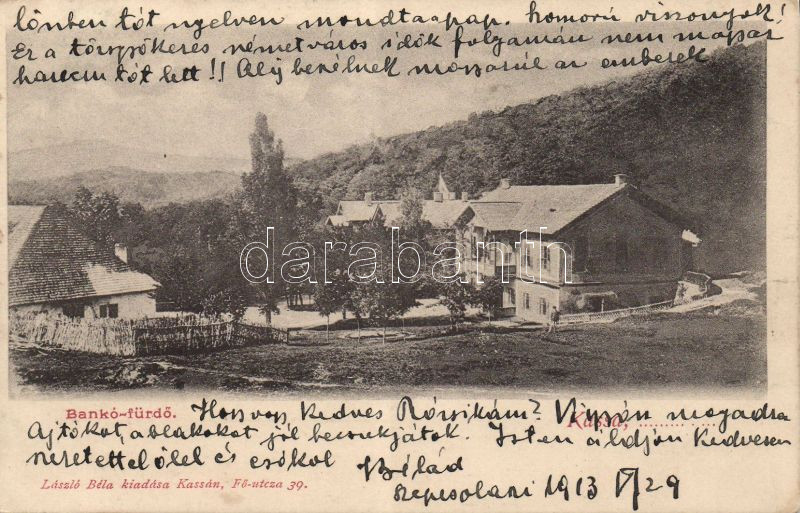 lönben tót nyelven mondta a pap. homorú viszonyok!
Ez a törzsgyökeres németváros idők folyamán nem magyar
hanem tót lett!! Alig beszélnek magyarul az emberek
darabanth
Bankó-fürdő.
Kassa,
Hogy vagy kedves Rózsikám? Vigyázz magadra
Ajtókat, ablakokat jól becsukjátok. Isten áldjon kedvesen
szeretettel ölel és csókol Bélád
László Béla kiadása Kassán, Fő-utcza 39.
1913 V/29